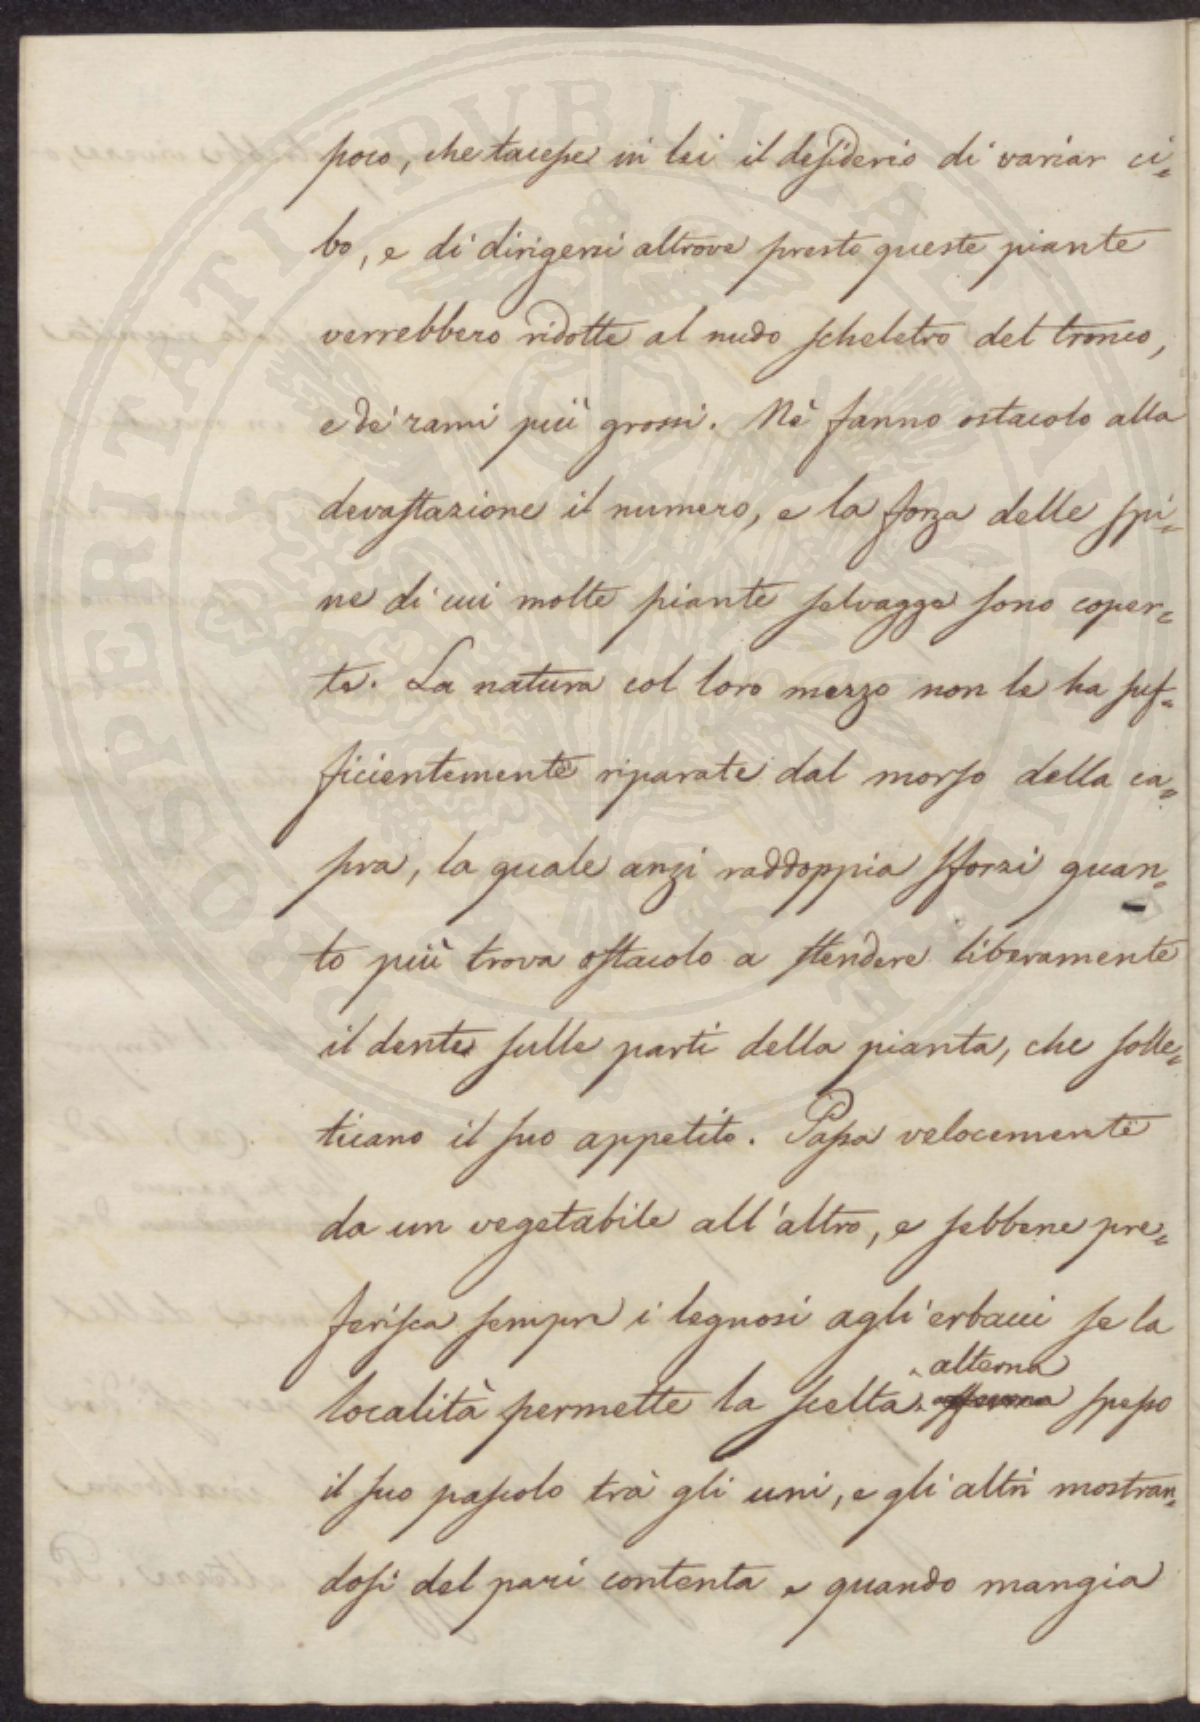 poco, che tacesse in lei il desiderio di variar ci=
bo, e di dirigersi altrove presto queste piante
verrebbero ridotte al nudo scheletro del tronco,
e de' rami più grossi. Nè fanno ostacolo alla
devastazione il numero, e la forza delle spi=
ne di cui molte piante selvagge sono coper=
te. La natura col loro mezzo non le ha suf=
ficientemente riparate dal morso della ca=
pra, la quale anzi raddoppia sforzi quan=
to più trova ostacolo a stendere liberamente
il dente sulle parti della pianta, che solle=
ticano il suo appetito. Passa velocemente
da un vegetabile all'altro, e sebbene pre=
ferisca sempre i legnosi agli erbacei se la
alterna
località permette la scelta, spesso
il suo pascolo trà gli uni, e gli altri mostran=
dosi del pari contenta e quando mangia
PROSPERITATI PVBLICAE